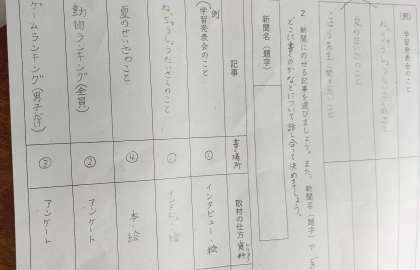 (例) 学習発表会のこと
ねっちゅうしょうたいさくのこと
夏のせいざのこと
2 新聞にのせる記事を選びましょう。また、新聞名(題字)や
どこに書くのかなどについて話し合って決めましょう。
新聞名(題字)
記事
書く場所
取材の仕方
資料
例
(学習発表会のこと
①
インタビュー・絵
ねっちゅうしょうたいさくのこと
夏のせいざのこと
④
本・絵
動物ランキング(全員)
②
アンケート
ゲームランキング(男子だけ)
②
アンケート